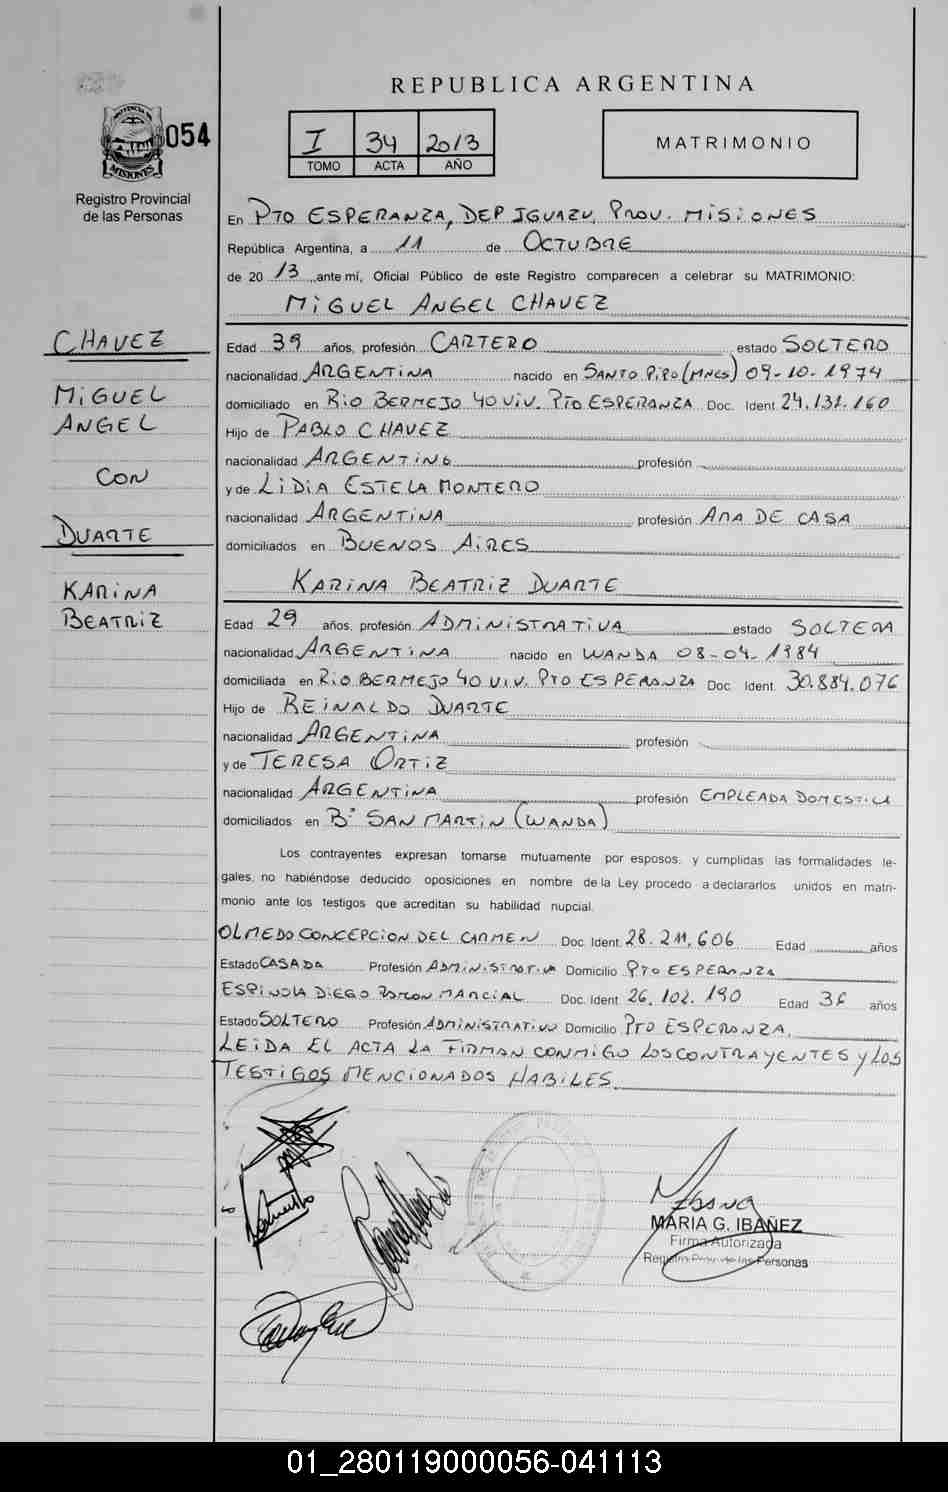 REPUBLICA ARGENTINA
PROVINCIA DE
MISIONES
054
Registro Provincial
de las Personas
I 34 2013
TOMO ACTA AÑO
MATRIMONIO
En PTO ESPERANZA, DEP IGUAZU, PROV. MISIONES
República Argentina, a 11 de OCTUBRE
de 2013 ante mí, Oficial Público de este Registro comparecen a celebrar su MATRIMONIO:
MIGUEL ANGEL CHAVEZ
CHAVEZ
MIGUEL
ANGEL
CON
DUARTE
KARINA
BEATRIZ
Edad 39 años, profesión CARTERO estado SOLTERO
nacionalidad ARGENTINA nacido en SANTO PIPO (MNES) 09-10-1974
domiciliado en RIO BERMEJO 40 VIV. PTO ESPERANZA Doc. Ident. 24.131.160
Hijo de PABLO CHAVEZ
nacionalidad ARGENTINO profesión
y de LIDIA ESTELA MONTERO
nacionalidad ARGENTINA profesión AMA DE CASA
domiciliados en BUENOS AIRES
KARINA BEATRIZ DUARTE
Edad 29 años, profesión ADMINISTRATIVA estado SOLTERA
nacionalidad ARGENTINA nacido en WANDA 08-04-1984
domiciliada en RIO BERMEJO 40 VIV. PTO ESPERANZA Doc. Ident. 30.884.076
Hijo de REINALDO DUARTE
nacionalidad ARGENTINA profesión
y de TERESA ORTIZ
nacionalidad ARGENTINA profesión EMPLEADA DOMESTICA
domiciliados en B° SAN MARTIN (WANDA)
Los contrayentes expresan tomarse mutuamente por esposos, y cumplidas las formalidades le-
gales, no habiéndose deducido oposiciones en nombre de la Ley procedo a declararlos unidos en matri-
monio ante los testigos que acreditan su habilidad nupcial.
OLMEDO CONCEPCION DEL CARMEN Doc. Ident. 28.211.606 Edad años
Estado CASADA Profesión ADMINISTRATIVA Domicilio PTO ESPERANZA
ESPINOLA DIEGO RAMON MARCIAL Doc. Ident. 26.102.190 Edad 36 años
Estado SOLTERO Profesión ADMINISTRATIVO Domicilio PTO ESPERANZA.
LEIDA EL ACTA LA FIRMAN CONMIGO LOS CONTRAYENTES Y LOS
TESTIGOS MENCIONADOS HABILES
MARIA G. IBAÑEZ
Firma Autorizada
Registro Prov. de las Personas
01_280119000056-041113